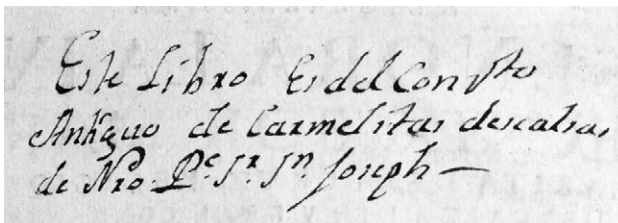 Este Libro Es del Convto
Antiguo de Carmelitas descalsas
de Nro. Pe. Sr. Sn. Joseph —